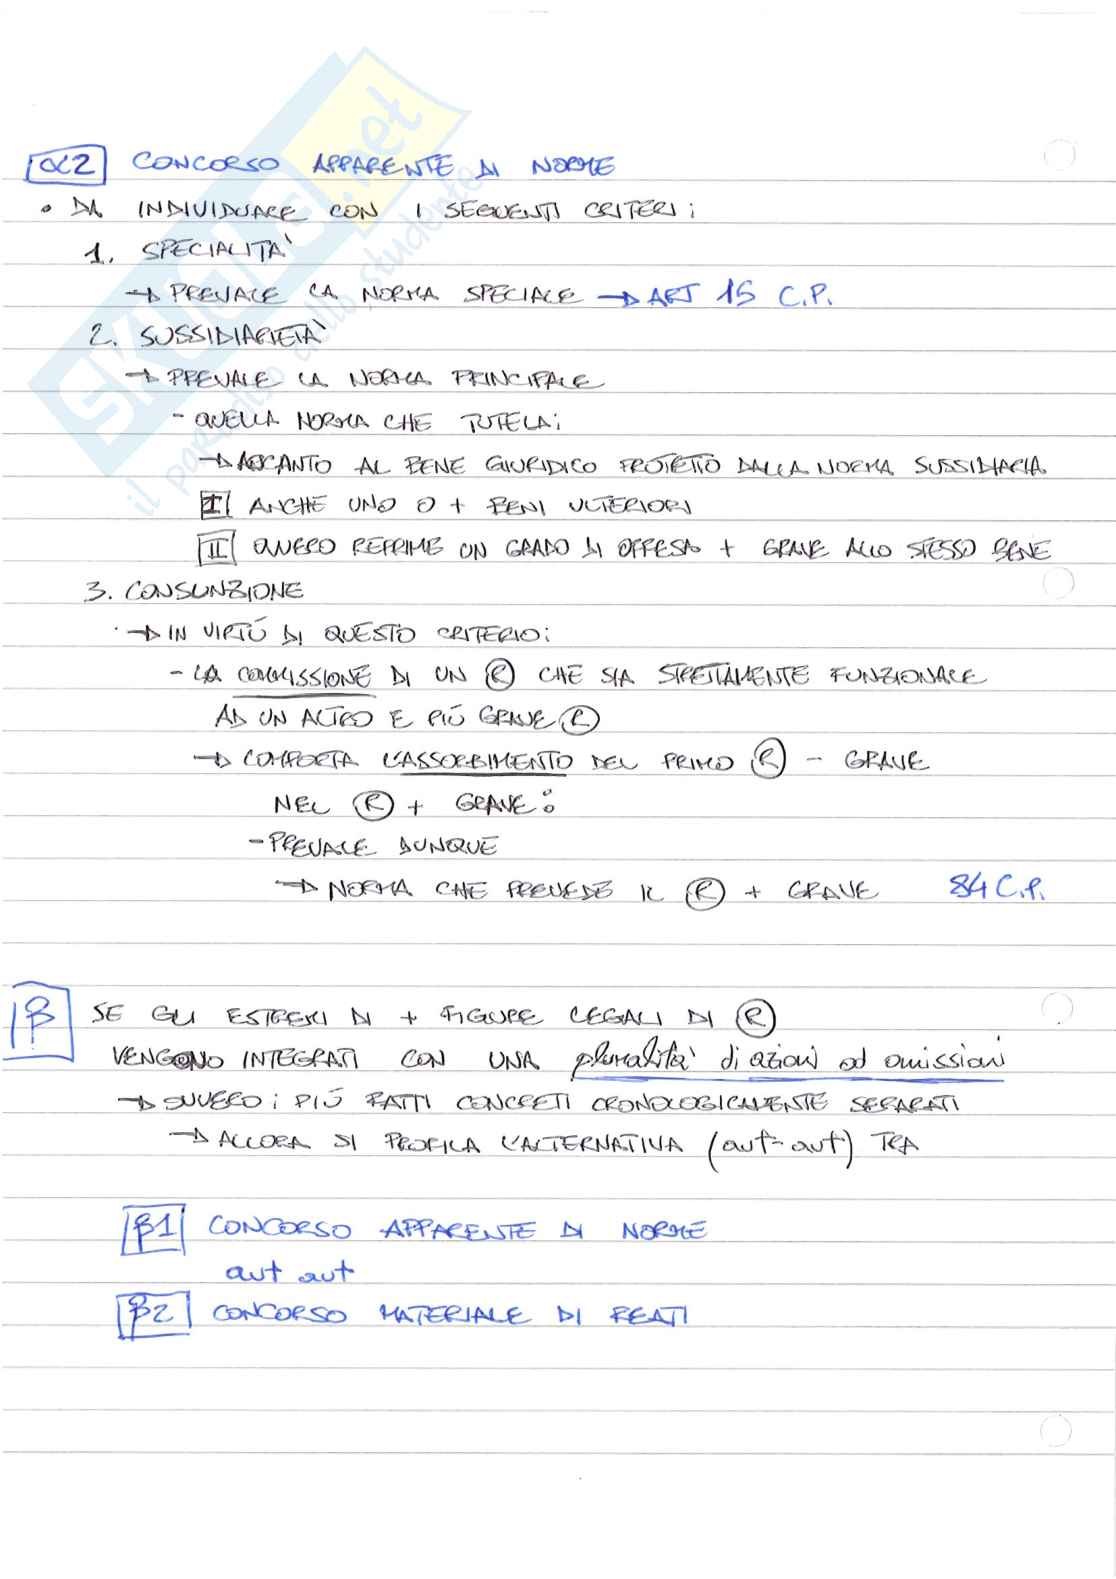 α2 CONCORSO APPARENTE DI NORME
• DA INDIVIDUARE CON I SEGUENTI CRITERI:
1. SPECIALITA'
→ PREVALE LA NORMA SPECIALE → ART 15 C.P.
2. SUSSIDIARIETA'
→ PREVALE LA NORMA PRINCIPALE
- QUELLA NORMA CHE TUTELA:
→ ACCANTO AL BENE GIURIDICO PROTETTO DALLA NORMA SUSSIDIARIA
I ANCHE UNO O + BENI ULTERIORI
II OVVERO REPRIME UN GRADO DI OFFESA + GRAVE ALLO STESSO BENE
3. CONSUNZIONE
→ IN VIRTÚ DI QUESTO CRITERIO:
- LA COMMISSIONE DI UN Ⓡ CHE SIA STRETTAMENTE FUNZIONALE
AD UN ALTRO E PIÚ GRAVE Ⓡ
→ COMPORTA L'ASSORBIMENTO DEL PRIMO Ⓡ - GRAVE
NEL Ⓡ + GRAVE:
- PREVALE DUNQUE
→ NORMA CHE PREVEDE IL Ⓡ + GRAVE 84 C.P.
β SE GLI ESTREMI DI + FIGURE LEGALI DI Ⓡ
VENGONO INTEGRATI CON UNA pluralità di azioni od omissioni
→ OVVERO: PIÚ FATTI CONCRETI CRONOLOGICAMENTE SEPARATI
→ ALLORA SI PROFILA L'ALTERNATIVA (aut-aut) TRA
β1 CONCORSO APPARENTE DI NORME
aut aut
β2 CONCORSO MATERIALE DI REATI
SKUOLA.net
il paradiso dello studente